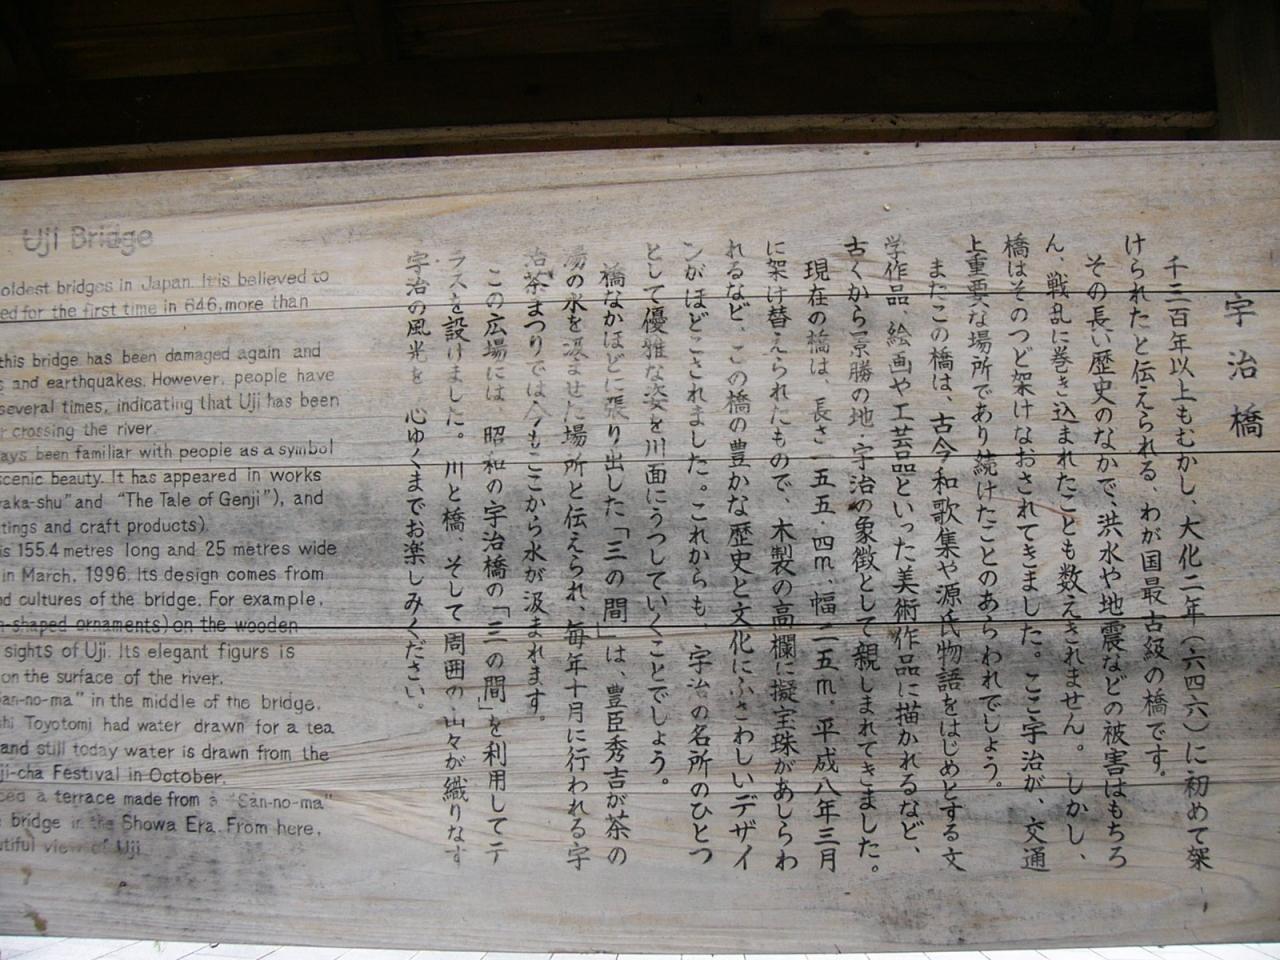 宇治橋
千三百年以上もむかし、大化二年(六四六)に初めて架
けられたと伝えられる、わが国最古級の橋です。
その長い歴史のなかで、洪水や地震などの被害はもちろ
ん、戦乱に巻き込まれたことも数えきれません。しかし、
橋はそのつど架けなおされてきました。ここ宇治が、交通
上重要な場所であり続けたことのあらわれでしょう。
またこの橋は、古今和歌集や源氏物語をはじめとする文
学作品、絵画や工芸品といった美術作品に描かれるなど、
古くから景勝の地・宇治の象徴として親しまれてきました。
現在の橋は、長さ一五五・四m、幅二五m。平成八年三月
に架け替えられたもので、木製の高欄に擬宝珠があしらわ
れるなど、この橋の豊かな歴史と文化にふさわしいデザイ
ンがほどこされました。これからも、宇治の名所のひとつ
として優雅な姿を川面にうつしていくことでしょう。
橋なかほどに張り出した「三の間」は、豊臣秀吉が茶の
湯の水を汲ませた場所と伝えられ、毎年十月に行われる宇
治茶まつりでは今もここから水が汲まれます。
この広場には、昭和の宇治橋の「三の間」を利用してテ
ラスを設けました。川と橋、そして周囲の山々が織りなす
宇治の風光を 心ゆくまでお楽しみください。
Uji Bridge
oldest bridges in Japan. It is believed to
ed for the first time in 646, more than
this bridge has been damaged again and
s and earthquakes. However, people have
several times, indicating that Uji has been
r crossing the river.
ays been familiar with people as a symbol
scenic beauty. It has appeared in works
waka-shu" and "The Tale of Genji"), and
tings and craft products).
is 155.4 metres long and 25 metres wide
in March, 1996. Its design comes from
nd cultures of the bridge. For example,
n-shaped ornaments) on the wooden
sights of Uji. Its elegant figurs is
on the surface of the river.
San-no-ma" in the middle of the bridge,
shi Toyotomi had water drawn for a tea
and still today water is drawn from the
ji-cha Festival in October.
ced a terrace made from a "San-no-ma"
bridge in the Showa Era. From here,
utiful view of Uji